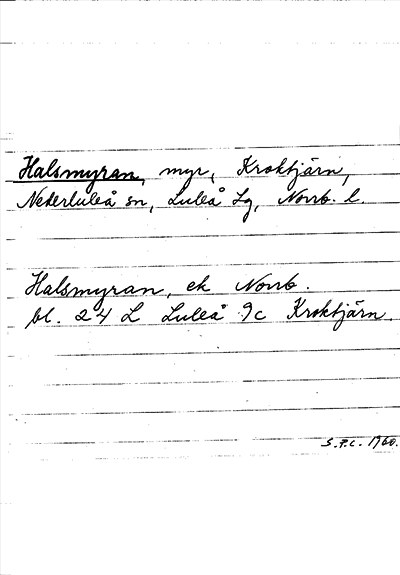 Halsmyran, myr, Kroktjärn,
Nederluleå sn, Luleå Lg, Norrb. l.
Halsmyran, ek Norrb.
bl. 24 L Luleå 9c Kroktjärn.
S.P.C. 1960.